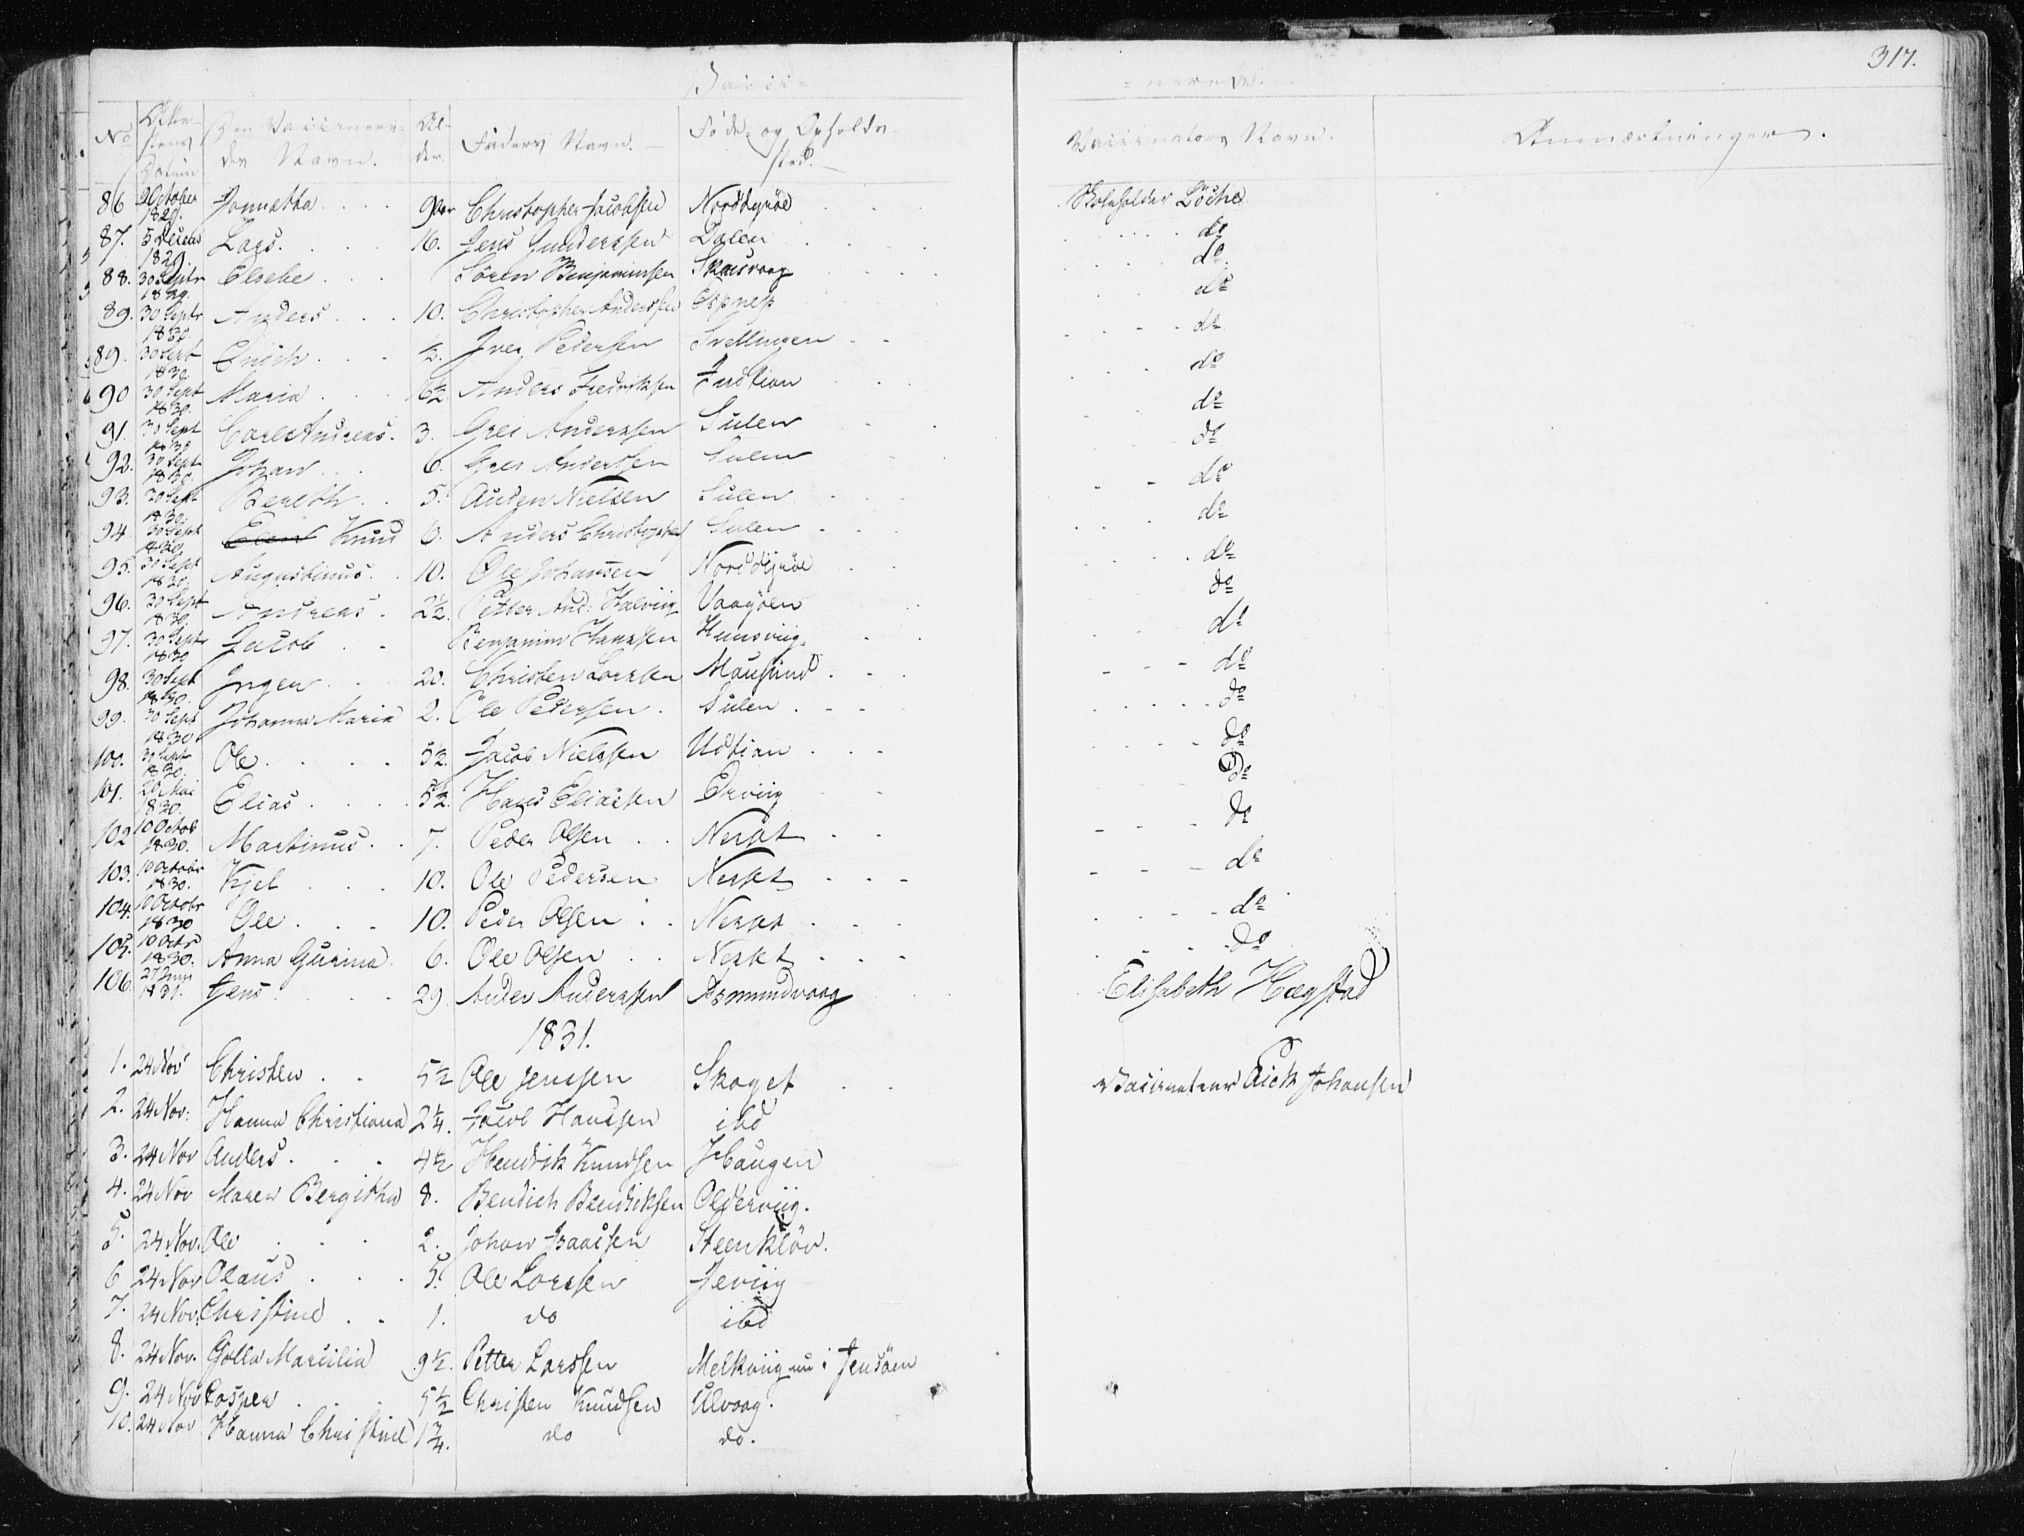 317.
Vacci= =nerede.
No Attestens Datum Den Vaccineredes Navn. Alder. Faders Navn. Føde= og Opholdssted. Vaccinators Navn. Anmærkninger.
86 9 October 1829. Jonnetta 9 Christopher Jacobsen Norddyrøe Skoleholder Löche
87. 5 Decem 1829. Lars. 16. Jens Gunderssen Dalen do
88. 30 Septr 1829. Elsebe Sören Benjaminsen Skarsvaag do
89. 30 Septr 1830. Anders 10. Christopher Anderssen Espness do
89. 30 Sept 1830. Enoch ½. Iver Pedersen Svellingen do
90 30 Sept 1830. Maria 6½ Anders Fredriksen do
91. 30 Sept 1830. Carl Andreas. 3. Gres Anderssen Sulen do
92. 30 Sept 1830. Johan 6. Gres Anderssen Sulen do
93. 20 Sept 1830. Bereth 5. Auden Nielsen Sulen do
94 30 Sept 1830. Knud 6. Anders Christophers Sulen do
95. 30 Sept 1830. Augustinus. 10. Ole Johansen Norddyrøe do
96. 30 Sept 1830. Andreas. 2½. Petter And: Halviig Vaagöen do
97. 30 Septr 1830 Jacob Benjamin Hanssen Humsviig do
98. 30 Sept 1830. Ingen 20. Christen Larssen Mausund do
99. 30 Sept 1830 Johanna Maria 2. Ole Pedersen. Sulen do
100. 30 Sept 1830. Ole 5½. Jacob Nielssen Udtian do
101. 20 Mai 1830. Elias 5½. Hans Eliassen Ervviig do
102 10 Octob 1830. Martinus. 7. Peder Olsen Neset do
103. 10 Octobr 1830. Kjel 10. Ole Pedersen Neset do
104. 10 Octobr 1830 Ole 10. Peder Olsen Neset do
105. 10 Octr 1830. Anna Gurina 6. Ole Olsen Neset do
106. 27 Juni 1831. Jens 29. Ander Anderssen Asmundvaag Elisabeth Hægstad
1831.
1. 24 Nov Christen 5½ Ole Jenssen Skaget Vaccinateur Erick Johansen
2. 24 Nov: Hanna Christiana 2¼. Jacob Hanssen ibd
3. 24 Nov Anders 4½ Hendrik Knudsen Haugen
4. 24 Nov Maren Bergitha 8. Bendich Bendriksen Olderviig.
5. 24 Nov. Ole 2. Johan Isaacsen Steenkløv.
6 24 Nov Olaus 5. Ole Larssen Jevviig
7. 24 Nov. Christine 1. do ibd
8. 24 Nov. Golla Marcilia 9½. Petter Larssen Melkviig nu i Jensöen
9. 24 Nov Casper 5½ Christen Knudsen Ulvaag.
10. 24 Nov Hanna Christine 1¾. do do.